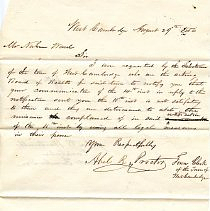 West Cambridge August 29th 18
Mr Nahum Ward
Sir
I am requested by the Selectmen
of the town of West Cambridge who are the acting
Board of Health for said town to notify you that
your communication of the 14th inst in reply to the
notification sent you the 11th inst is not satisfactory
to them and they are determined to abate the
nuisance complained of in said notification
of the 11th inst by using all legal measures
in their power
Yours Respectfully
Abel R Proctor Town Clerk
of the Town of
West Cambridge